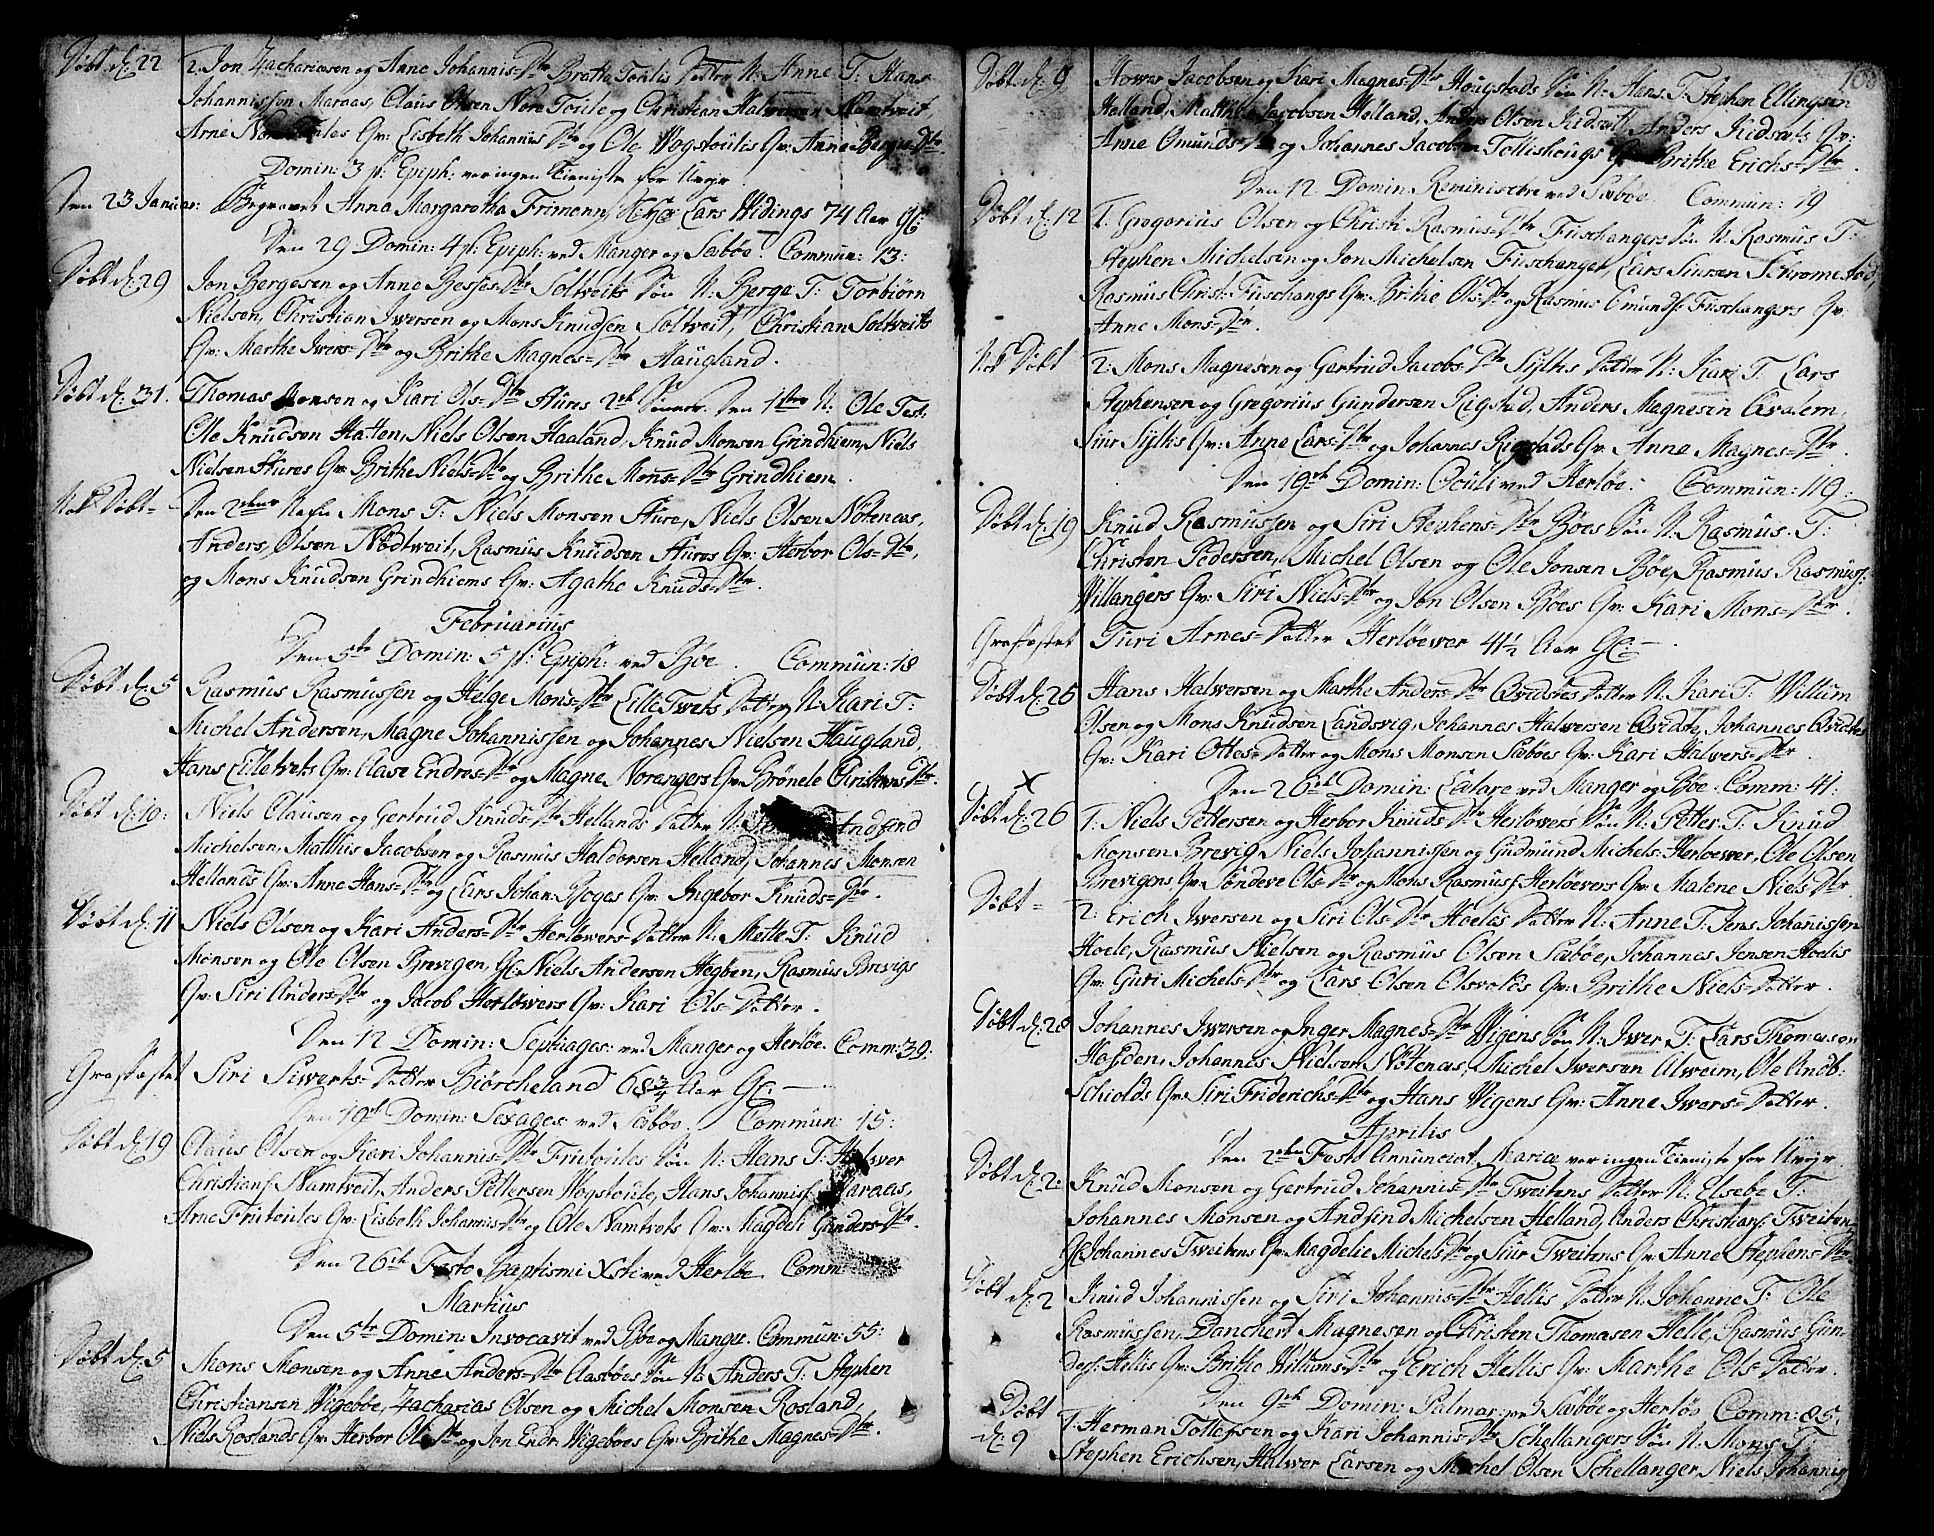 Døbt d: 22 2. Jon Zachariasen og Anne Johannis-Dtr Bratta Toulis Datter N: Anne T: Hans
Johannissen Maraas, Claus Olsen Nora Toule og Christian Halvorsen Namtveit,
Arne Toules Qv: Lisbeth Johannis Dtr og Ole Wogstoulis Qv: Anne Berges-Dtr
Domin: 3 p: Epiph: var ingen Tieniste for Uveyr
Den 23 Januar: Begravet Anna Margaretha Frimenn, Lars Widings 74 Aar Gl:
Den 29 Domin: 4 p: Epiph: ved Manger og Sæbøe. Commun: 13:
Døbt d: 29 Jon Bergesen og Anne Besses-Dtr Soltveits Søn N: Berge T: Torbiørn
Nielsen, Christian Iwersen og Mons Knudsen Soltveit, Christian Soltveits
Qv: Marthe Iwers-Dtr og Brithe Magnes-Dtr Haugland.
Døbt d: 31. Thomas Monsen og Kari Ols-Dtr Hures 2de Sønner. Den 1ste N: Ole Test:
Ole Knudsen Hatten, Niels Olsen Haaland, Knud Monsen Grindhiem, Niels
Nielsen Hures Qv: Brithe Niels-Dtr og Brithe Mons-Dtr Grindhiem.
Nok Døbt- Den 2den Nafn Mons T: Niels Monsen Hure, Niels Olsen Nøtenæs,
Anders Olsen Nødtweit, Rasmus Knudsen Hures Qv: Herbor Ols-Dtr,
og Mons Knudsen Grindhiems Qv: Agathe Knuds-Dtr.
Februarius
Den 5te Domin: 5 p: Epiph: ved Bøe. Commun: 18
Døbt d: 5 Rasmus Rasmussen og Helge Mons-Dtr Lille Twets Datter N: Kari T:
Michel Andersen, Magne Johannissen og Johannes Nielsen Haugland,
Hans Lilletvets Qv: Aase Endres-Dtr og Magne Norangers Qv: Brønele Christens Dtr.
Døbt d: 10: Niels Olausen og Gertrud Knuds-Dtr Hellands Datter N: Andfind
Michelsen, Matthis Jacobsen og Rasmus Haldorsen Helland, Johannes Monsen
Hellands Qv: Anne Hans-Dtr og Lars Johan: Boges Qv: Ingebor Knuds-Dtr.
Døbt d: 11 Niels Olsen og Kari Anders-Dtr Herløwers Datter N: Mette T: Knud
Monsen og Ole Olsen Brevigen, Gl: Niels Andersen Hegben, Rasmus Brevigs
Qv: Siri Anders-Dtr og Jacob Herløwers Qv: Kari Ols-Datter.
Den 12 Domin: Septuages: ved Manger og Herløe. Comm: 39:
Graffæstet Siri Siwerts-Datter Biørcheland 68 3/4 Aar Gl: —
Den 19de Domin: Sexages: ved Sæbøe. Commun: 15:
Døbt d: 19 Claus Olsen og Kari Johannis-Dtr Fristoules Søn N: Hans T: Halwer
Christians: Namtveit, Anders Pettersen Wogstoule, Hans Johanniss: Maraas,
Arne Fristoules Qv: Lisbeth Johannis-Dtr og Ole Namtvets Qv: Magdeli Gunders-Dtr.
Den 26de Festo Baptismi Xsti ved Herløe. Comm:
Martius
Den 5te Domin: Invocavit ved Bøe og Manger. Commun: 55:
Døbt d: 5 Mons Monsen og Anne Anders-Dtr Aasbøes Søn N: Anders T: Stephen
Christiansen Wigebøe, Zacharias Olsen og Michel Monsen Rosland,
Niels Roslands Qv: Herbor Ols Dtr og Jon Endr: Wigebøes Qv: Brithe Magnes-Dtr.
Døbt d: 9 Howar Jacobsen og Kari Magnes-Dtr Hougstads Søn N: Hans T: Stephen Ellingsen
Helland, Matthis Jacobsen Helland, Anders Olsen Kidsæt, Anders Kidsæts Qv:
Anne Omunds-Dtr og Johannes Jacobsen Tolleshougs Qv: Brithe Erichs-Dtr.
Den 12 Domin: Reminiscere ved Sæbøe Commun: 19
Døbt d: 12 1. Gregorius Olsen og Christi Rasmus-Dtr Fuschangers Søn N: Rasmus T:
Stephen Michelsen og Jon Michelsen Fuschanger, Lars Siursen Schromestad,
Rasmus Christ: Fuschangs Qv: Brithe Ols-Dtr og Rasmus Omunds: Fuschangers Qv:
Anne Mons-Dtr.
Nok Døbt 2. Mons Magnesen og Gertrud Jacobs-Dtr Sylts Datter N: Kari T: Lars
Stephensen og Gregorius Gundersen Rigstad, Anders Magnesen Qvalem,
Siur Sylts Qv: Anne Lars-Dtr og Johannes Rigstads Qv: Anne Magnes-Dtr.
Den 19de Domin: Oculi ved Herløe. Commun: 119:
Døbt d: 19 Knud Rasmussen og Siri Stephens-Dtr Bøes Søn N: Rasmus. T:
Christen Pedersen, Michel Olsen og Ole Jonsen Bøe, Rasmus Rasmuss:
Willangers Qv: Siri Niels-Dtr og Jon Olsen Bøes Qv: Kari Mons-Dtr.
Graffæstet Turi Arnes-Datter Herløewer 41 1/2 Aar Gl: —
Døbt d: 25 Hans Halwersen og Marthe Anders-Dtr Qvidstes Datter N: Kari T: Willum
Olsen og Mons Knudsen Landsvig, Johannes Halwersen Qvidste, Johannes Qvidstes
Qv: Kari Ottes-Datter og Mons Monsen Sæbøes Qv: Kari Halvers-Dtr.
Den 26de Domin: Lætare ved Manger og Bøe. Comm: 41:
x
Døbt d: 26 1. Niels Pettersen og Herbor Knuds-Dtr Herløwers Søn N: Petter T: Knud
Monsen Brevig, Niels Johannissen og Gudmund Michels: Herløewer, Ole Olsen
Brevigens Qv: Sondeve Ols-Dtr og Mons Rasmus: Herløevers Qv: Malene Niels-Dtr
Døbt- 2: Erich Iwersen og Siri Ols-Dtr Hoelis Datter N: Anne T: Jens Johannissen
Hoele, Rasmus Nielsen og Rasmus Olsen Sæbøe, Johannes Jensen Hoelis
Qv: Guri Michels-Dtr og Lars Olsen Osvolds Qv: Brithe Niels-Datter.
Døbt d: 28 Johannes Iwersen og Inger Magnes-Dtr Wigens Søn N: Iwer T: Lars Thomassen
Hagden, Johannes Nielsen Nøtenæs, Michel Iwersen Alweim, Ole Andb:
Schiolds Qv: Siri Friderichs-Dtr og Hans Wigens Qv: Anne Iwers-Datter.
Aprilis
Den 2den Festo Annunciat: Mariæ var ingen Tieniste for Uveyr
Døbt d: 2: Knud Monsen og Gertrud Johannis-Dtr Tweitens Datter N: Elsebe T:
Johannes Monsen og Andfind Michelsen Helland, Anders Christians: Tweiten,
Gl: Johannes Tweitens Qv: Magdelie Michels Dtr og Siur Tweitens Qv: Anne Stephens-Dtr.
Døbt d: 2 Knud Johannissen og Siri Johannis-Dtr Hellis Datter N: Johanne T: Ole
Rasmussen, Danchert Magnesen og Christen Thomasen Helle, Rasmus Gun-
ders: Hellis Qv: Brithe Willums-Dtr og Erich Hellis Qv: Marthe Ols-Datter.
Den 9de Domin: Palmar: ved Sæbøe og Herløe Comm: 85:
Døbt d: 9 1. Herman Tollefsen og Kari Johannis-Dtr Schellangers Søn N: Mons T:
Stephen Erichsen, Halwer Larsen og Michel Olsen Schellanger, Niels Johannis